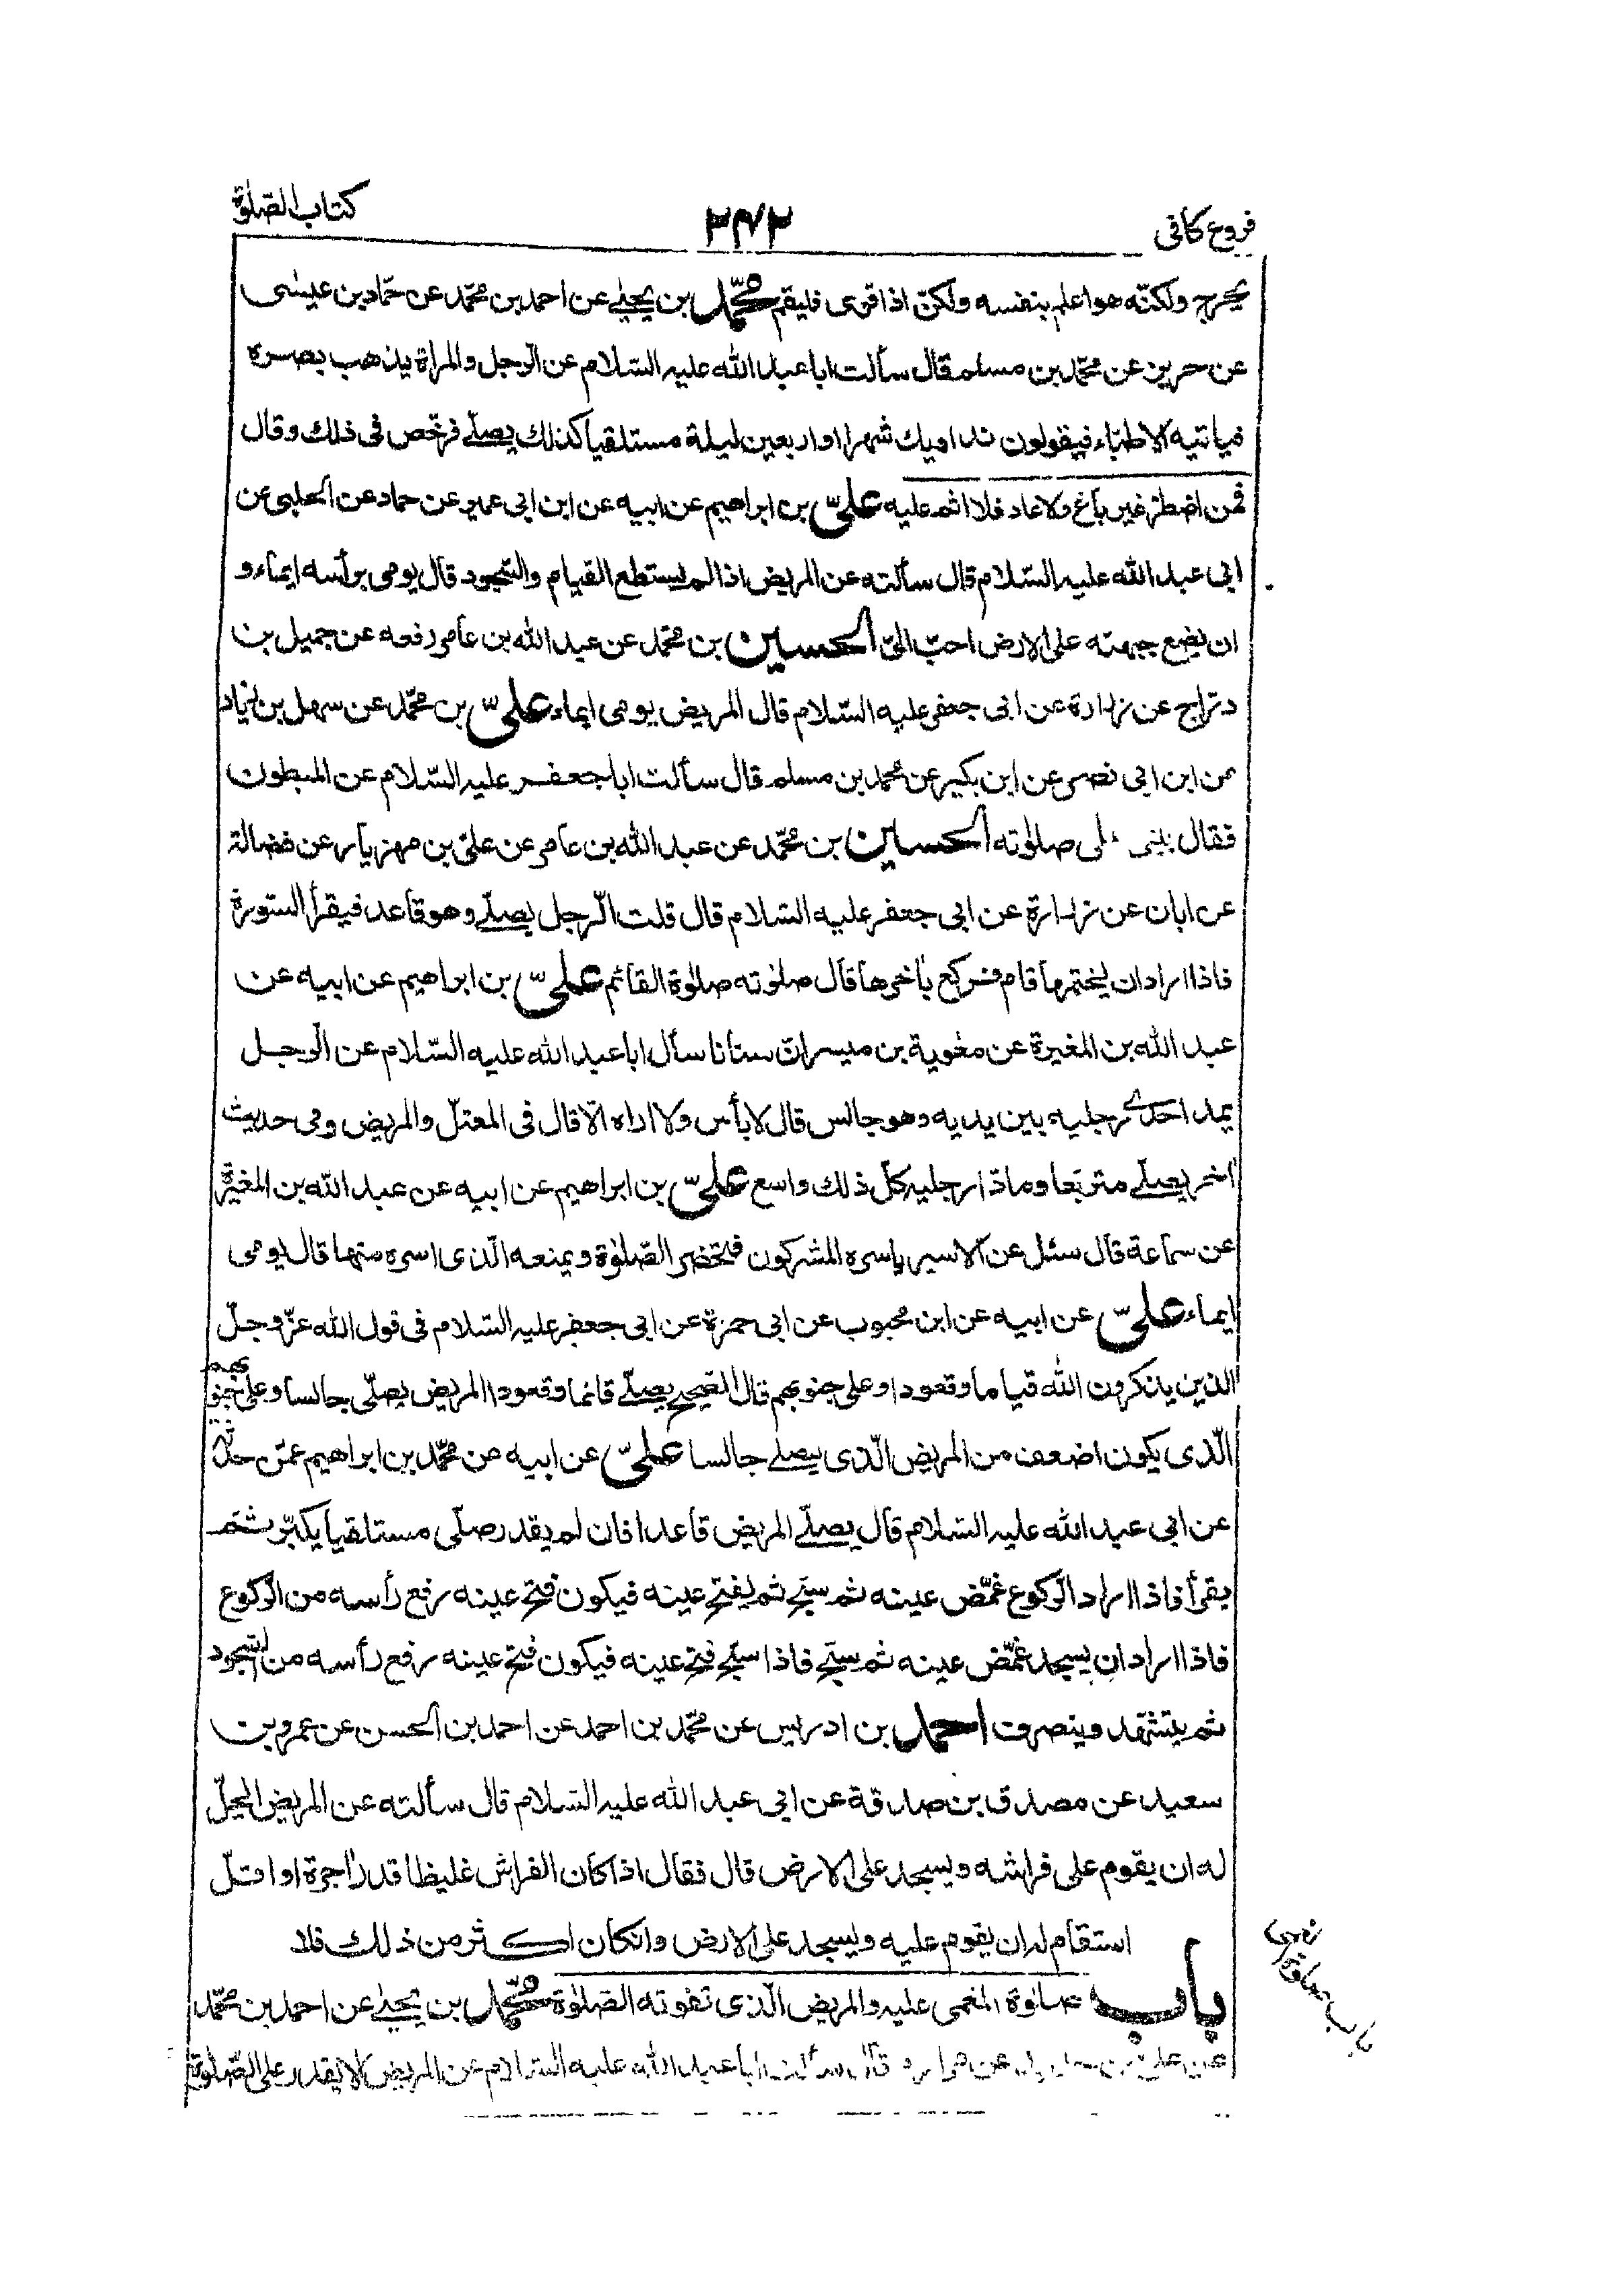 فروع كافى
٢٤٢
كتاب الصّلوٰة
يحرج ولكنّه هو اعلم بنفسه ولكن اذا قوى فليقم محمّد بن يحيٰى عن احمد بن محمّد عن حمّاد بن عيسٰى
عن حريز عن محمّد بن مسلم قال سألت ابا عبد الله عليه السّلام عن الرّجل والمراة يذهب بصره
فياتيه الاطبّاء فيقولون نداويك شهرا او اربعين ليلة مستلقيا كذلك يصلّى فرخّص فى ذلك وقال
فمن اضطرّ غير باغ ولا عاد فلا اثم عليه علىّ بن ابراهيم عن ابيه عن ابن ابى عمير عن حماد عن الحلبى عن
ابى عبد الله عليه السّلام قال سألته عن المريض اذا لم يستطع القيام والسّجود قال يومى برأسه ايماء و
ان يضع جبهته على الارض احبّ الىّ الحسين بن محمّد عن عبد الله بن عامر رفعه عن جميل بن
درّاج عن زرارة عن ابى جعفر عليه السّلام قال المريض يومى ايماء علىّ بن محمّد عن سهل بن زياد
عن ابن ابى نصر عن ابن بكير عن محمد بن مسلم قال سألت ابا جعفر عليه السّلام عن المبطون
فقال يبنى على صلوٰته الحسين بن محمّد عن عبد الله بن عامر عن علىّ بن مهزيار عن فضالة
عن ابان عن زرارة عن ابى جعفر عليه السّلام قال قلت الرّجل يصلّى وهو قاعد فيقرأ السّورة
فاذا اراد ان يختمها قام فركع بأخرها قال صلوٰته صلوٰة القائم علىّ بن ابراهيم عن ابيه عن
عبد الله بن المغيرة عن معٰوية بن ميسر انّ سنانا سأل ابا عبد الله عليه السّلام عن الرّجل
يمد احدى رجليه بين يديه وهو جالس قال لا بأس ولا اراه الّا قال فى المعتلّ والمريض وفى حديث
اخر يصلّى متربّعا ومادّا رجليه كلّ ذلك واسع علىّ بن ابراهيم عن ابيه عن عبد الله بن المغيرة
عن سماعة قال سئل عن الاسير ياسره المشركون فتحضر الصّلوٰة ويمنعه الّذى اسره منها قال يومى
ايماء علىّ عن ابيه عن ابن محبوب عن ابى حمزة عن ابى جعفر عليه السّلام فى قول الله عزّ وجلّ
الذين يذكرون الله قياما وقعودا وعلى جنوبهم قال الصّحيح يصلّى قائما وقعودا المريض يصلّى جالسا وعلى جنوبهم
الّذى يكون اضعف من المريض الّذى يصلّى جالسا علىّ عن ابيه عن محمّد بن ابراهيم عمّن حدّثه
عن ابى عبد الله عليه السّلام قال يصلّى المريض قاعدا فان لم يقدر صلّى مستلقيا يكبّر ثمّ
يقرأ فاذا اراد الرّكوع غمّض عينه ثم سبّح ثم يفتح عينه فيكون فتح عينه رفع رأسه من الرّكوع
فاذا اراد ان يسجد غمّض عينه ثم سبّح فاذا سبّح فتح عينه فيكون فتح عينه رفع رأسه من السّجود
ثم يتشهّد وينصرف احمد بن ادريس عن محمّد بن احمد عن احمد بن الحسن عن عمرو بن
سعيد عن مصدق بن صدقة عن ابى عبد الله عليه السّلام قال سألته عن المريض ايحلّ
له ان يقوم على فراشه ويسجد على الارض قال فقال اذا كان الفراش غليظا قدر اجرة او اقلّ
استقام له ان يقوم عليه ويسجد على الارض وان كان اكثر من ذلك فلا
باب صلوٰة المغمى عليه والمريض الّذى تفوته الصّلوٰة محمّد بن يحيٰى عن احمد بن محمّد
عن علىّ بن عن قال سألت ابا عبد الله عليه السّلام عن المريض لا يقدر على الصّلوٰة
باب صلوٰة